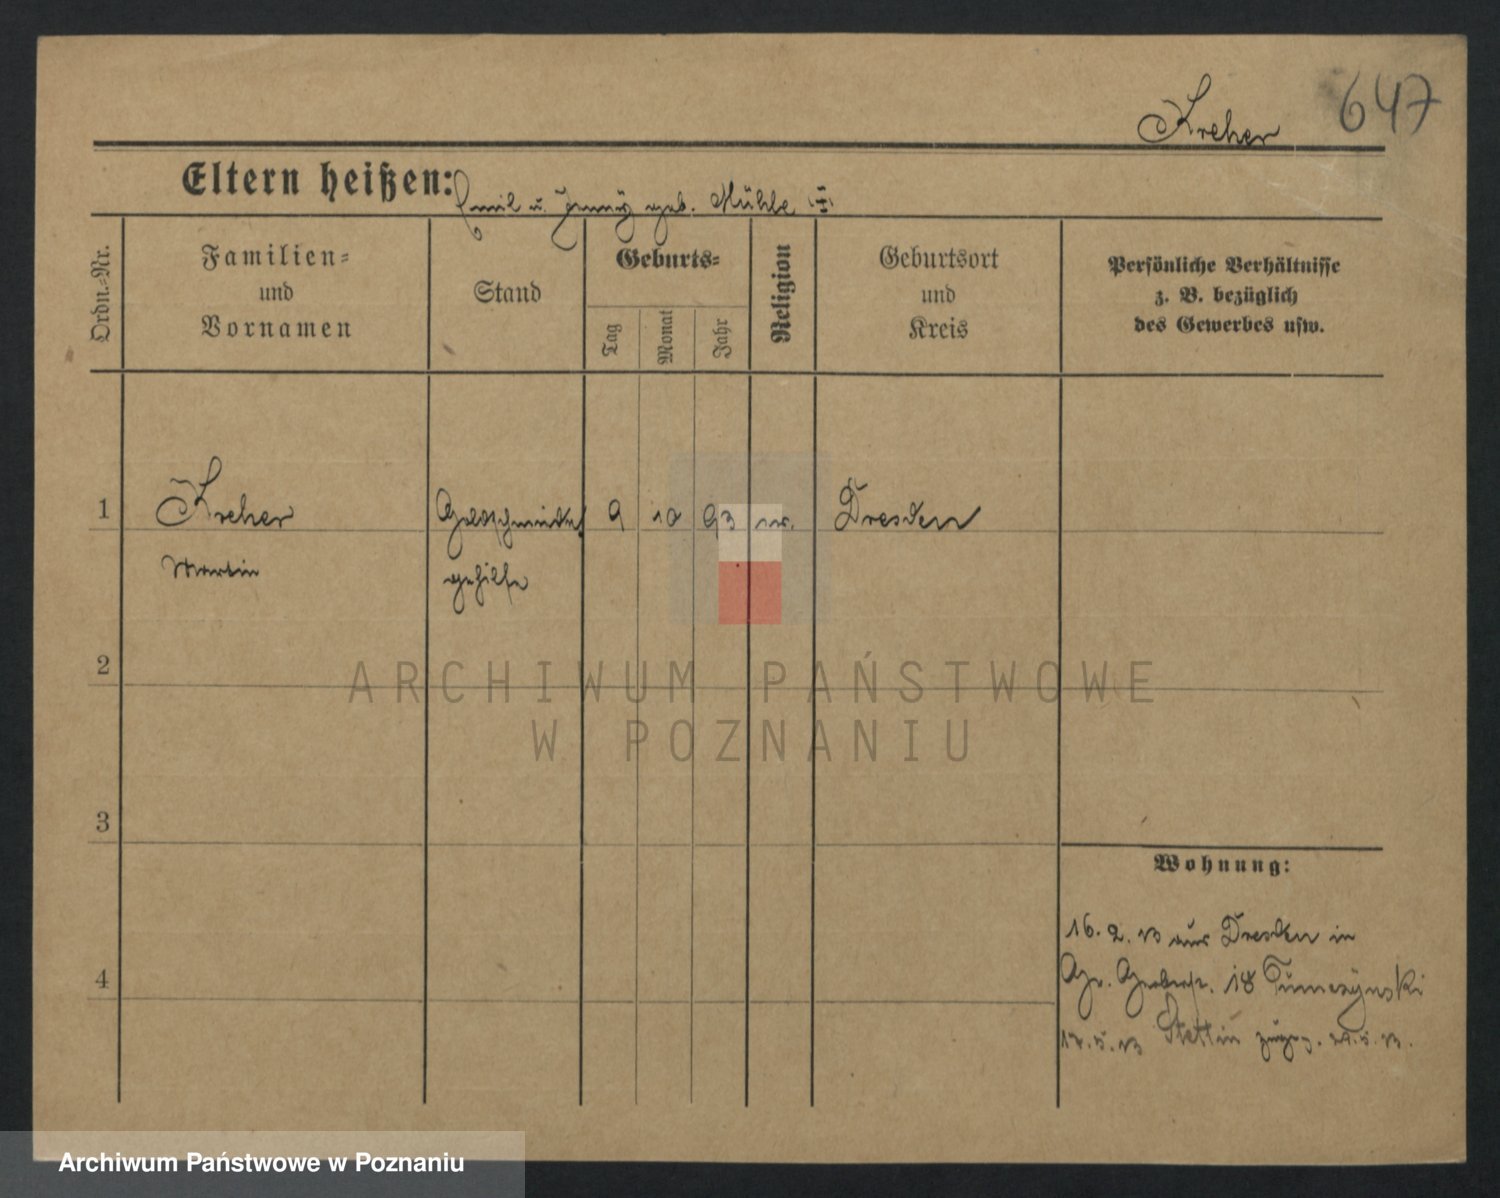 Kreher 647
Eltern heißen: Emil u. Jenny geb. Mühle
Ordn.-Nr.
Familien-
und
Vornamen
Stand
Geburts-
Tag
Monat
Jahr
Religion
Geburtsort
und
Kreis
Persönliche Verhältnisse
z. B. bezüglich
des Gewerbes usw.
1 Kreher Goldschmiede 9 10 93 Dresden
Martin gehilfe
2
3
4
Wohnung:
16. 2. 13 aus Dresden in
Gr. Gerberstr. 18
17. 5. 13 Stettin 24. 5. 13.
ARCHIWUM PAŃSTWOWE
W POZNANIU
Archiwum Państwowe w Poznaniu